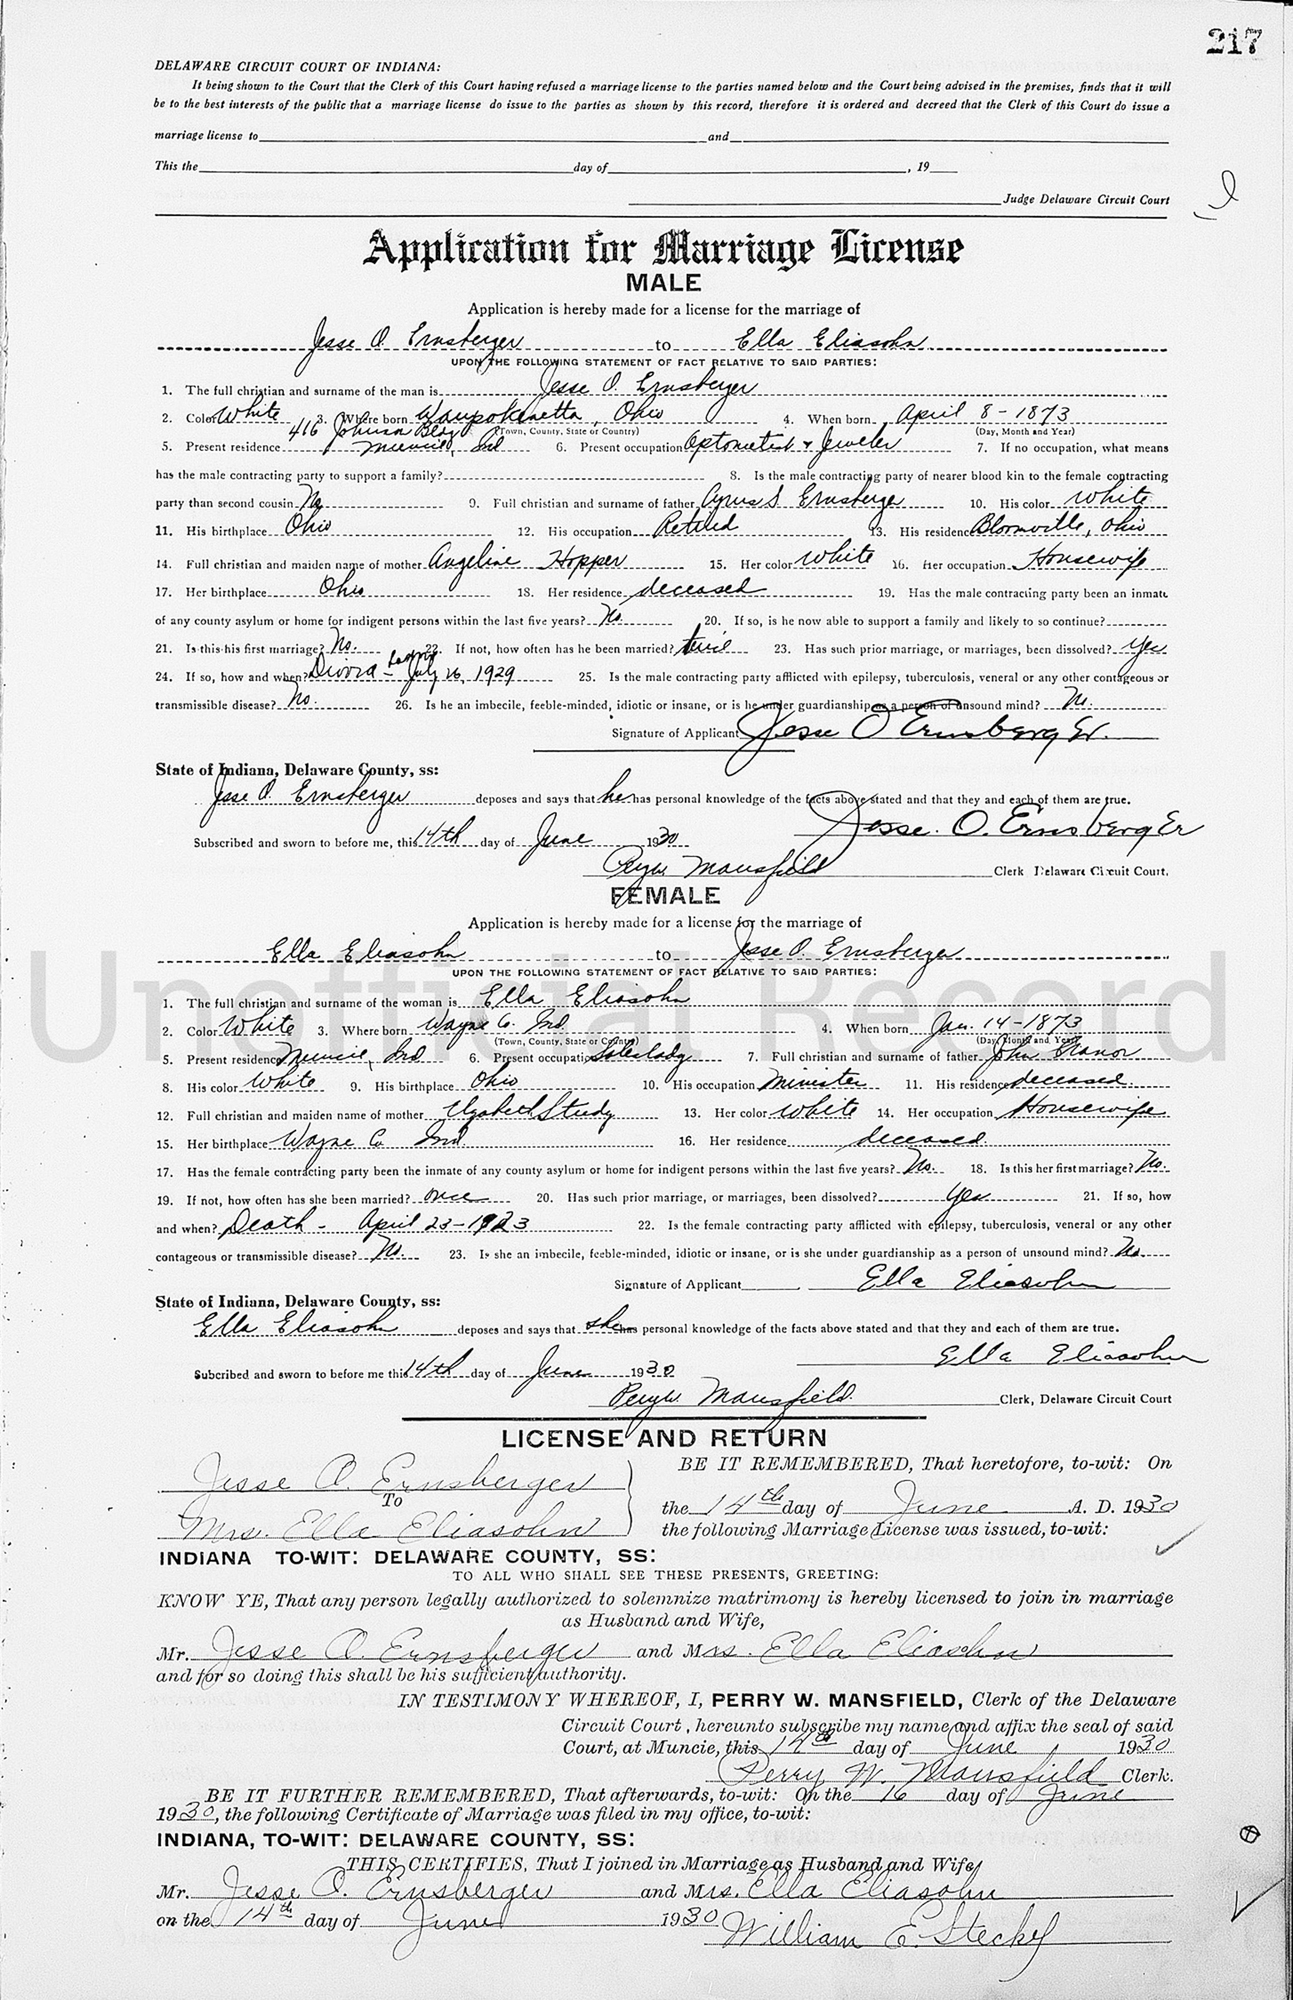 217
DELAWARE CIRCUIT COURT OF INDIANA:
It being shown to the Court that the Clerk of this Court having refused a marriage license to the parties named below and the Court being advised in the premises, finds that it will
be to the best interests of the public that a marriage license do issue to the parties as shown by this record, therefore it is ordered and decreed that the Clerk of this Court do issue a
marriage license to and
This the day of , 19
Judge Delaware Circuit Court
Application for Marriage License
MALE
Application is hereby made for a license for the marriage of
Jesse O. Ernsberger to Ella Eliasohn
UPON THE FOLLOWING STATEMENT OF FACT RELATIVE TO SAID PARTIES:
1. The full christian and surname of the man is Jesse O. Ernsberger
2. Color White 3. Where born Waupokenetta, Ohio 4. When born April 8 - 1873
416 Johnson Bldg (Town, County, State or Country) (Day, Month and Year)
5. Present residence Muncie, Ind 6. Present occupation Optometrist & Jeweler 7. If no occupation, what means
has the male contracting party to support a family? 8. Is the male contracting party of nearer blood kin to the female contracting
party than second cousin No 9. Full christian and surname of father Cyrus S. Ernsberger 10. His color White
11. His birthplace Ohio 12. His occupation Retired 13. His residence Bloomville, Ohio
14. Full christian and maiden name of mother Angeline Hopper 15. Her color White 16. Her occupation Housewife
17. Her birthplace Ohio 18. Her residence deceased 19. Has the male contracting party been an inmate
of any county asylum or home for indigent persons within the last five years? No. 20. If so, is he now able to support a family and likely to so continue?
21. Is this his first marriage? No. 22. If not, how often has he been married? 23. Has such prior marriage, or marriages, been dissolved? Yes
24. If so, how and when? Divorce - July 16, 1929 25. Is the male contracting party afflicted with epilepsy, tuberculosis, veneral or any other contageous or
transmissible disease? No. 26. Is he an imbecile, feeble-minded, idiotic or insane, or is he under guardianship as a person of unsound mind? No.
Signature of Applicant Jesse O Ernsberger.
State of Indiana, Delaware County, ss:
Jesse O. Ernsberger deposes and says that he has personal knowledge of the facts above stated and that they and each of them are true.
Jesse. O. Ernsberger
Subscribed and sworn to before me, this 14th day of June 1930
Perry W. Mansfield Clerk Delaware Circuit Court.
FEMALE
Application is hereby made for a license for the marriage of
Ella Eliasohn to Jesse O. Ernsberger
UPON THE FOLLOWING STATEMENT OF FACT RELATIVE TO SAID PARTIES:
Unofficial Record
1. The full christian and surname of the woman is Ella Eliasohn
2. Color White 3. Where born Wayne Co. Ind. 4. When born Jan. 14 - 1873
(Town, County, State or Country) (Day, Month and Year)
5. Present residence Muncie, Ind 6. Present occupation Saleslady 7. Full christian and surname of father John Manor
8. His color White 9. His birthplace Ohio 10. His occupation Minister 11. His residence deceased.
12. Full christian and maiden name of mother Elizabeth Study 13. Her color White 14. Her occupation Housewife
15. Her birthplace Wayne Co Ind. 16. Her residence deceased.
17. Has the female contracting party been the inmate of any county asylum or home for indigent persons within the last five years? No. 18. Is this her first marriage? No.
19. If not, how often has she been married? once 20. Has such prior marriage, or marriages, been dissolved? Yes 21. If so, how
and when? Death - April 23 - 1923 22. Is the female contracting party afflicted with epilepsy, tuberculosis, veneral or any other
contageous or transmissible disease? No. 23. Is she an imbecile, feeble-minded, idiotic or insane, or is she under guardianship as a person of unsound mind? No.
Signature of Applicant Ella Eliasohn
State of Indiana, Delaware County, ss:
Ella Eliasohn deposes and says that she has personal knowledge of the facts above stated and that they and each of them are true.
Ella Eliasohn
Subcribed and sworn to before me this 14th day of June 1930
Perry W. Mansfield. Clerk, Delaware Circuit Court
LICENSE AND RETURN
Jesse O. Ernsberger
To
Mrs. Ella Eliasohn
BE IT REMEMBERED, That heretofore, to-wit: On
the 14th day of June A. D. 1930
the following Marriage License was issued, to-wit:
INDIANA TO-WIT: DELAWARE COUNTY, SS:
TO ALL WHO SHALL SEE THESE PRESENTS, GREETING:
KNOW YE, That any person legally authorized to solemnize matrimony is hereby licensed to join in marriage
as Husband and Wife,
Mr. Jesse O. Ernsberger and Mrs. Ella Eliasohn
and for so doing this shall be his sufficient authority.
IN TESTIMONY WHEREOF, I, PERRY W. MANSFIELD, Clerk of the Delaware
Circuit Court, hereunto subscribe my name and affix the seal of said
Court, at Muncie, this 14th day of June 1930
Perry W. Mansfield Clerk.
BE IT FURTHER REMEMBERED, That afterwards, to-wit: On the 16 day of June
1930, the following Certificate of Marriage was filed in my office, to-wit:
INDIANA, TO-WIT: DELAWARE COUNTY, SS:
THIS CERTIFIES, That I joined in Marriage as Husband and Wife
Mr. Jesse O. Ernsberger and Mrs. Ella Eliasohn
on the 14th day of June 1930 William E. Steckel